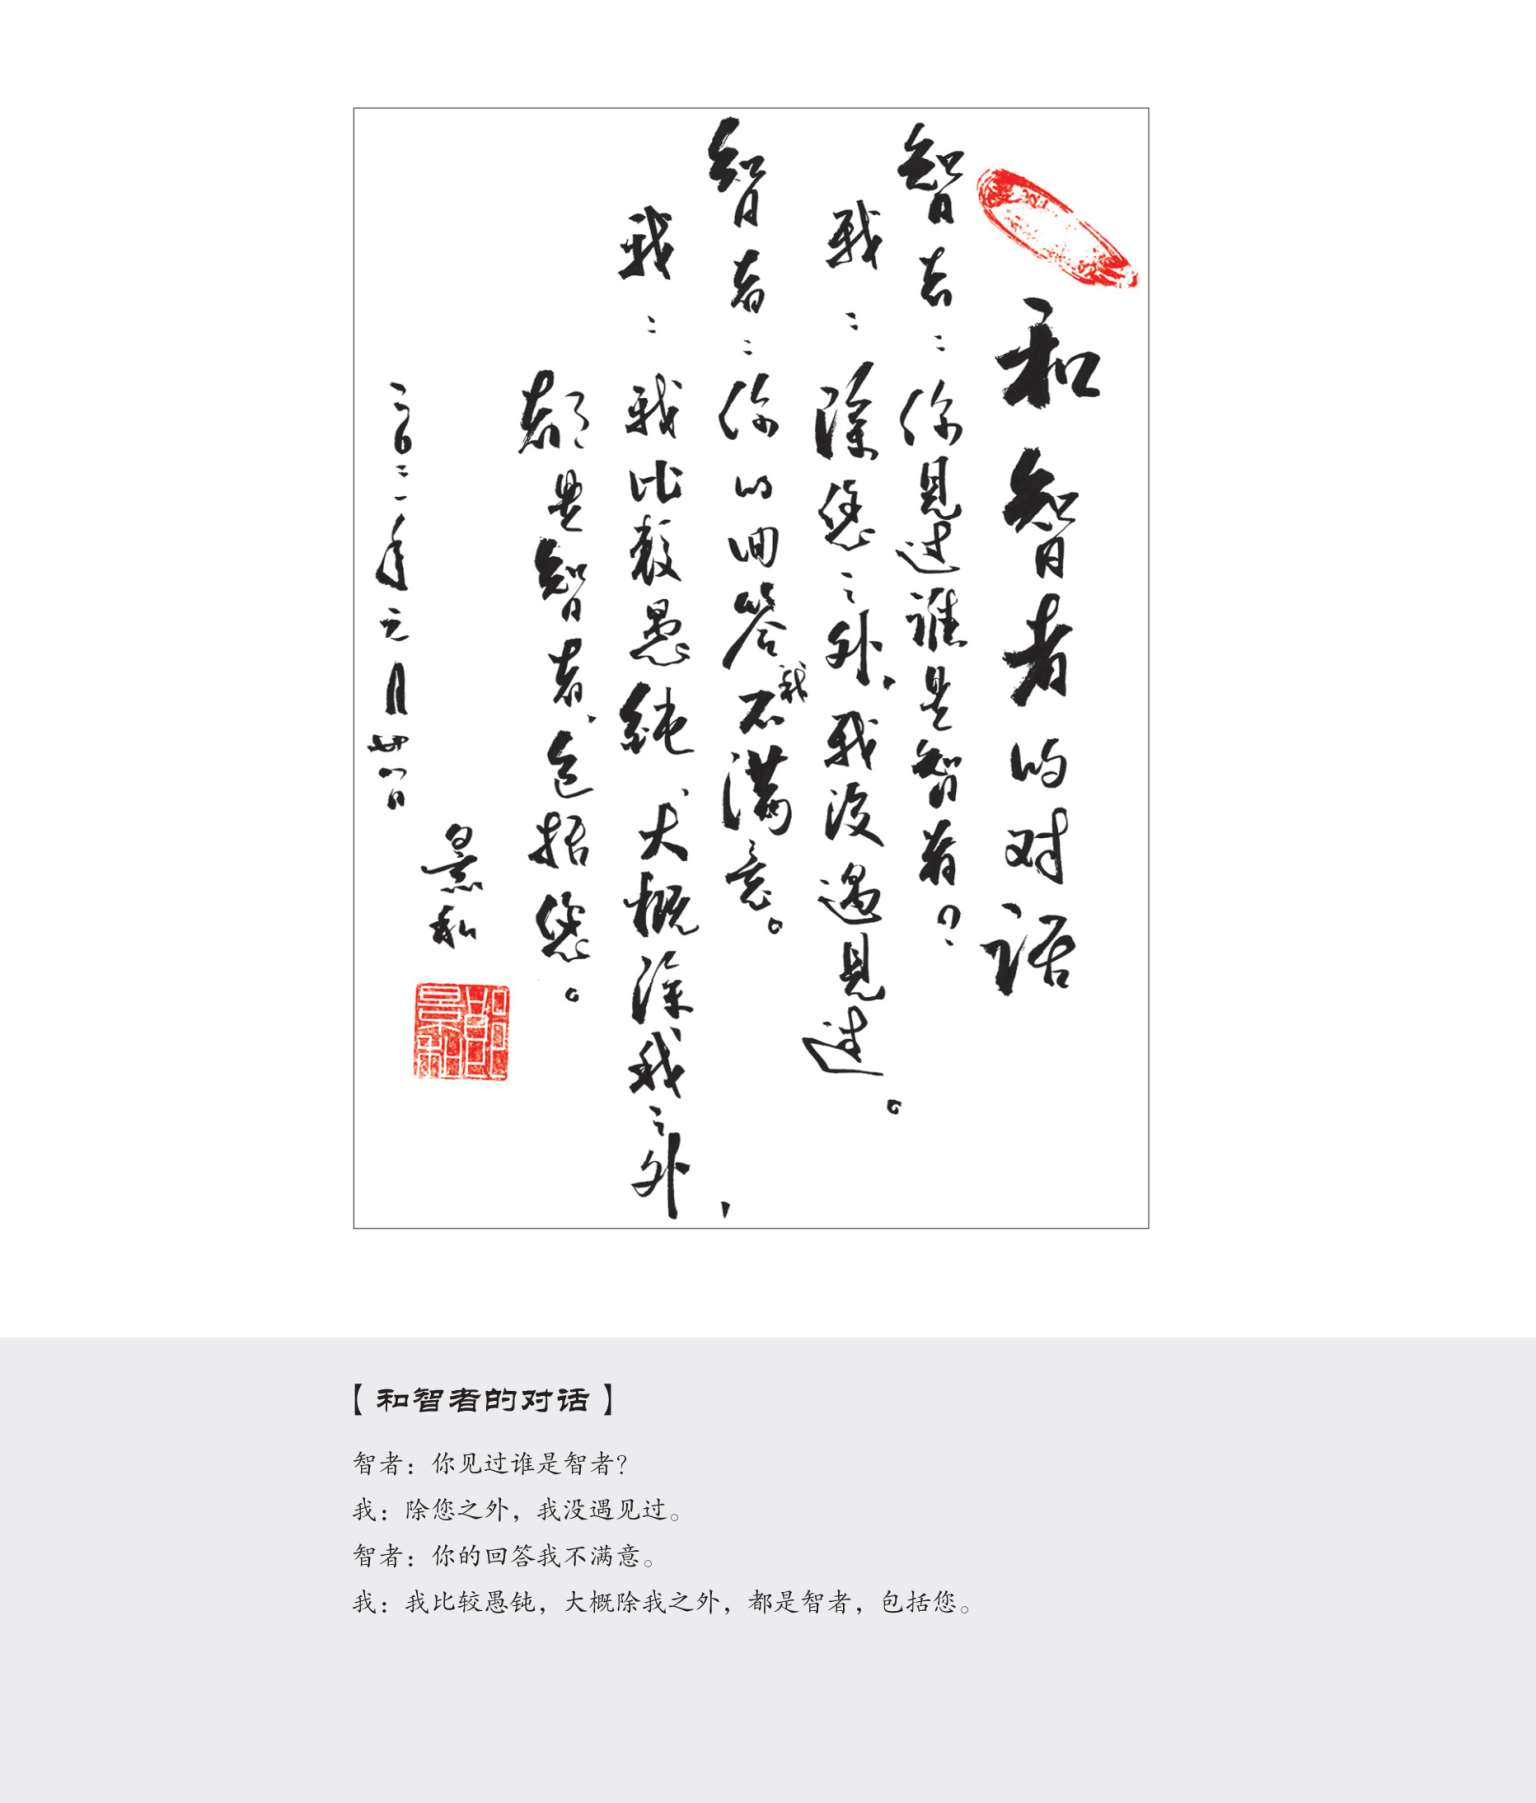 和智者的对话
智者：你见过谁是智者？
我：除您之外，我没遇见过。
智者：你的回答我不满意。
我：我比较愚钝，大概除我之外，
都是智者，包括您。
景和
二〇二一年元月廿八日
【和智者的对话】
智者：你见过谁是智者？
我：除您之外，我没遇见过。
智者：你的回答我不满意。
我：我比较愚钝，大概除我之外，都是智者，包括您。